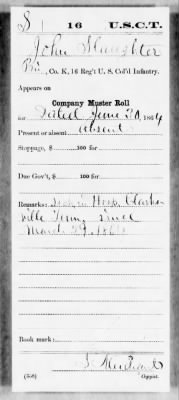 S | 16 | U.S.C.T.
John Slaughter
Pri, Co. K, 16 Reg't U. S. Col'd Infantry.
Appears on
Company Muster Roll
for Dated June 30, 1864
Present or absent absent
Stoppage, $ 100 for
Due Gov't, $ 100 for
Remarks: Sick in Hosp. Clarks-
ville Tenn. since
March 29, 
Book mark:
(358) Copyist.